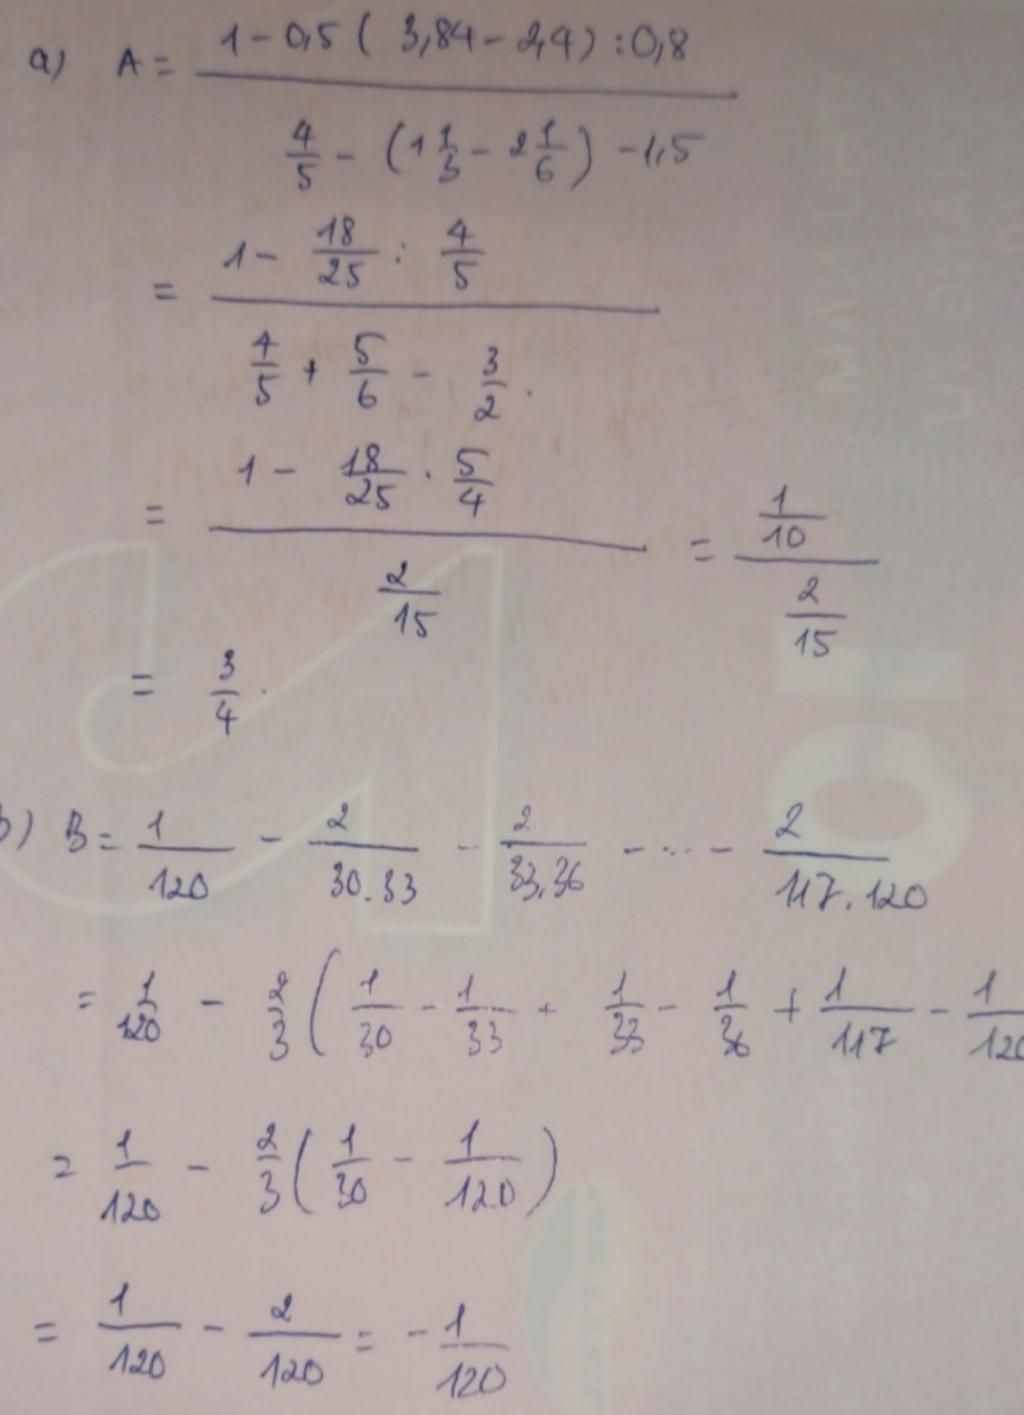 a) A = \frac{1 - 0,5 ( 3,84 - 2,4) : 0,8}{\frac{4}{5} - (1\frac{1}{3} - 2\frac{1}{6}) - 1,5}
= \frac{1 - \frac{18}{25} : \frac{4}{5}}{\frac{4}{5} + \frac{5}{6} - \frac{3}{2}.}
= \frac{1 - \frac{18}{25} . \frac{5}{4}}{\frac{2}{15}} = \frac{\frac{1}{10}}{\frac{2}{15}}
= \frac{3}{4}.
b) B = \frac{1}{120} - \frac{2}{30.33} - \frac{2}{33.36} - ... - \frac{2}{117.120}
= \frac{1}{120} - \frac{2}{3} ( \frac{1}{30} - \frac{1}{33} + \frac{1}{33} - \frac{1}{36} + \frac{1}{117} - \frac{1}{120}
= \frac{1}{120} - \frac{2}{3} ( \frac{1}{30} - \frac{1}{120} )
= \frac{1}{120} - \frac{2}{120} = - \frac{1}{120}